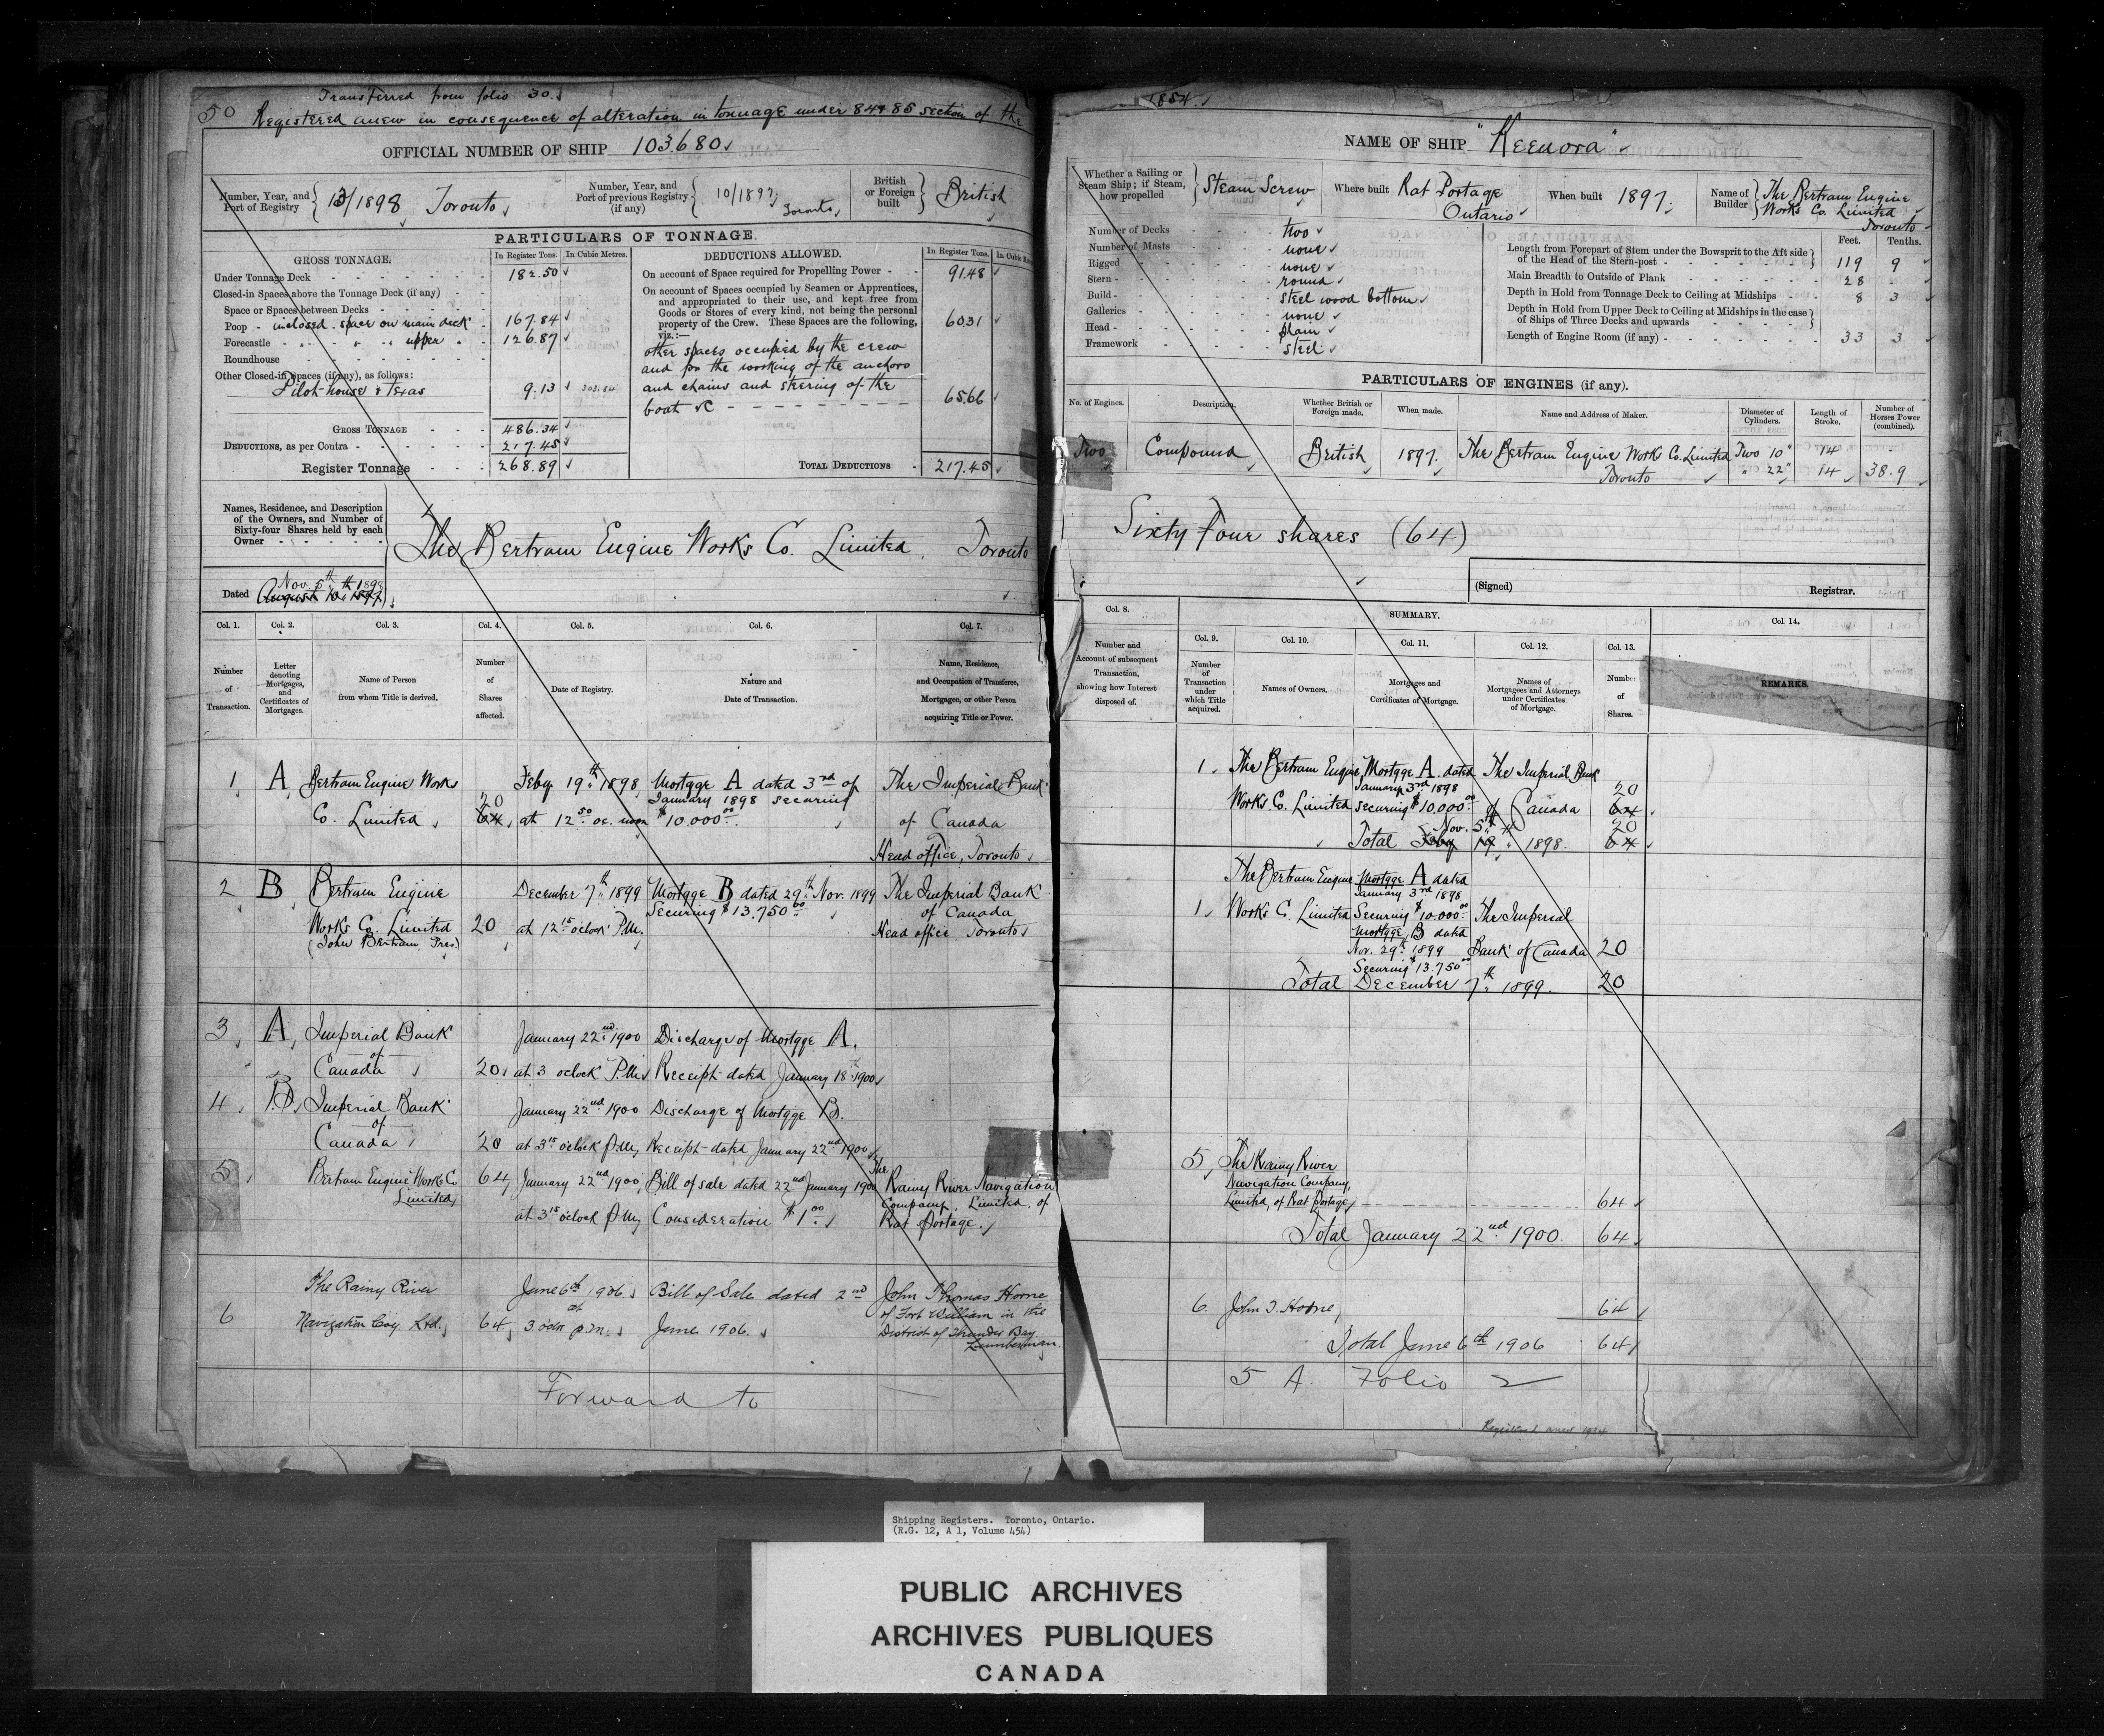 Transferred from folio 30.
50 Registered anew in consequence of alteration in tonnage under 84 & 85 section of the
1854.
OFFICIAL NUMBER OF SHIP 103.680
NAME OF SHIP "Keenora"
Number, Year, and Port of Registry 13/1898 Toronto
Number, Year, and Port of previous Registry (if any) 10/1897 Toronto
British or Foreign built British
Whether a Sailing or Steam Ship; if Steam, how propelled Steam Screw
Where built Rat Portage Ontario
When built 1897
Name of Builder The Bertram Engine Works Co. Limited Toronto
PARTICULARS OF TONNAGE.
GROSS TONNAGE. In Register Tons. In Cubic Metres.
Under Tonnage Deck 182.50
Closed-in Spaces above the Tonnage Deck (if any)
Space or Spaces between Decks
Poop - inclosed space on main deck 167.84
Forecastle " " " upper " 126.87
Roundhouse
Other Closed-in Spaces (if any), as follows:
Pilot-house & texas 9.13 303.84
GROSS TONNAGE 486.34
DEDUCTIONS, as per Contra 217.45
Register Tonnage 268.89
DEDUCTIONS ALLOWED. In Register Tons.
On account of Space required for Propelling Power 91.48
On account of Spaces occupied by Seamen or Apprentices,
and appropriated to their use, and kept free from
Goods or Stores of every kind, not being the personal
property of the Crew. These Spaces are the following, 60.31
viz.:—
other spaces occupied by the crew
and for the working of the anchors
and chains and steering of the
boat &c 65.66
TOTAL DEDUCTIONS 217.45
Number of Decks two
Number of Masts none
Rigged none
Stern round
Build steel wood bottom
Galleries none
Head plain
Framework steel
Feet. Tenths.
Length from Forepart of Stem under the Bowsprit to the Aft side
of the Head of the Stern-post 119 9
Main Breadth to Outside of Plank 28
Depth in Hold from Tonnage Deck to Ceiling at Midships 8 3
Depth in Hold from Upper Deck to Ceiling at Midships in the case
of Ships of Three Decks and upwards
Length of Engine Room (if any) 33 3
PARTICULARS OF ENGINES (if any).
No. of Engines. Description. Whether British or Foreign made. When made. Name and Address of Maker. Diameter of Cylinders. Length of Stroke. Number of Horses Power (combined).
Two Compound British 1897. The Bertram Engine Works Co. Limited Two 10" 14
Toronto " 22" 14 38.9
Names, Residence, and Description
of the Owners, and Number of
Sixty-four Shares held by each
Owner
The Bertram Engine Works Co. Limited, Toronto
Sixty Four shares (64)
Nov. 5th 1898
Dated August 10th 1897
(Signed) Registrar.
Col. 1. Col. 2. Col. 3. Col. 4. Col. 5. Col. 6. Col. 7.
Number of Transaction.
Letter denoting Mortgages, and Certificates of Mortgages.
Name of Person from whom Title is derived.
Number of Shares affected.
Date of Registry.
Nature and Date of Transaction.
Name, Residence, and Occupation of Transferee, Mortgagee, or other Person acquiring Title or Power.
Col. 8. SUMMARY. Col. 14.
Col. 9. Col. 10. Col. 11. Col. 12. Col. 13.
Number and Account of subsequent Transaction, showing how Interest disposed of.
Number of Transaction under which Title acquired.
Names of Owners.
Mortgages and Certificates of Mortgage.
Names of Mortgagees and Attorneys under Certificates of Mortgage.
Number of Shares.
REMARKS.
1 A Bertram Engine Works Feby 19th 1898 Mortgge A dated 3rd of The Imperial Bank
20 January 1898 securing
Co. Limited 64 at 12 50 oc. noon $10.000 00 of Canada
Head office, Toronto
2 B Bertram Engine December 7th 1899 Mortgge B dated 29th Nov. 1899 The Imperial Bank
Securing $13.750 00 of Canada
Works Co. Limited 20 at 12 15 oclock P.M. Head office Toronto
(John Bertram Pres)
3 A Imperial Bank January 22nd 1900 Discharge of Mortgge A.
of
Canada 20 at 3 oclock P.M. Receipt dated January 18th 1900
4 B Imperial Bank January 22nd 1900 Discharge of Mortgge B.
of
Canada 20 at 3 15 oclock P.M. Receipt dated January 22nd 1900
5 Bertram Engine Works Co 64 January 22nd 1900 Bill of sale dated 22nd January 1900 The Rainy River Navigation
Limited Company, Limited, of
at 3 15 oclock P.M. Consideration $1 00 Rat Portage.
The Rainy River June 6th 1906 Bill of Sale dated 2nd John Thomas Horne
at of Fort William in the
6 Navigation Coy. Ltd. 64 3 oclk p.m. June 1906. District of Thunder Bay
Lumberman.
Forward to
1. The Bertram Engine Mortgge A. dated The Imperial Bank
January 3rd 1898 20
Works Co. Limited securing $10.000 00 of Canada 64
Nov. 5th 20
Total Feby 19 " 1898. 64
The Bertram Engine Mortgge A dated
January 3rd 1898
1 Works Co. Limited Securing $10.000 00 The Imperial
Mortgge B dated
Nov. 29th 1899 Bank of Canada 20
Securing $13.750 00
Total December 7th 1899. 20
5 The Rainy River
Navigation Company,
Limited, of Rat Portage 64
Total January 22nd 1900. 64
6. John T. Horne 64
Total June 6th 1906 64
5 A. Folio 2
Registered anew 1924
Shipping Registers. Toronto, Ontario.
(R.G. 12, A 1, Volume 454)
PUBLIC ARCHIVES
ARCHIVES PUBLIQUES
CANADA